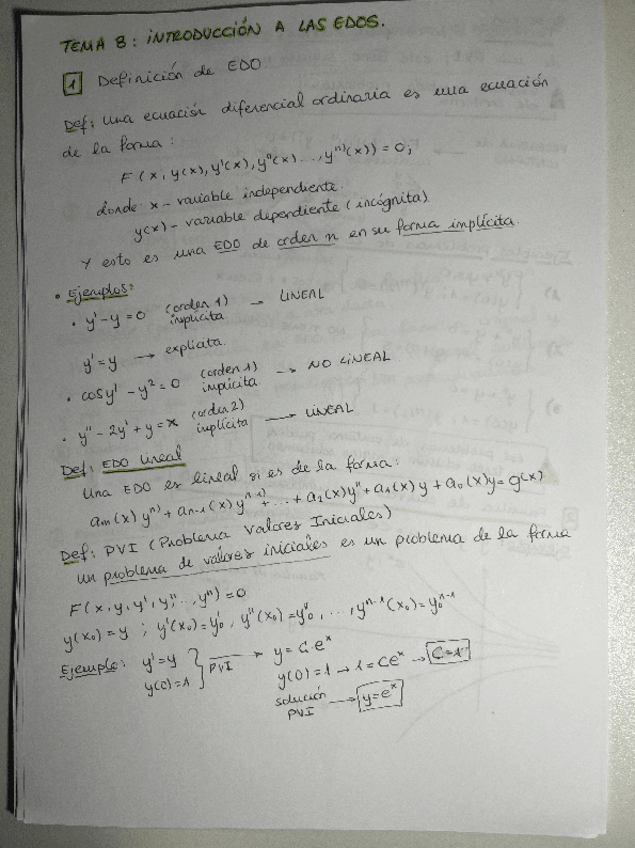 TEMA 8: INTRODUCCIÓN A LAS EDOS.
1 Definición de EDO
Def: Una ecuación diferencial ordinaria es una ecuación
de la forma:
F(x, y(x), y'(x), y''(x)..., yⁿ⁾(x)) = 0;
donde x - variable independiente.
y(x) - variable dependiente (incógnita)
Y esto es una EDO de orden n en su forma implícita.
• Ejemplos:
• y' - y = 0 (orden 1) implícita → LINEAL
y' = y → explícita.
• cos y' - y² = 0 (orden 1) implícita → NO LINEAL
• y'' - 2y' + y = x (orden 2) implícita → LINEAL
Def: EDO lineal
Una EDO es lineal si es de la forma:
aₙ(x) yⁿ⁾ + aₙ₋₁(x) yⁿ⁻¹⁾ + ... + a₂(x)y'' + a₁(x)y + a₀(x)y = g(x)
Def: PVI (Problema Valores Iniciales)
Un problema de valores iniciales es un problema de la forma
F(x, y, y', y'', ... yⁿ) = 0
y(x₀) = y ; y'(x₀) = y'₀, y''(x₀) = y''₀, ..., yⁿ⁻¹(x₀) = y₀ⁿ⁻¹
Ejemplo: y' = y } PVI → y = C·eˣ
y(0) = 1 y(0) = 1 → 1 = Ceˣ → C = 1
solución PVI → y = eˣ